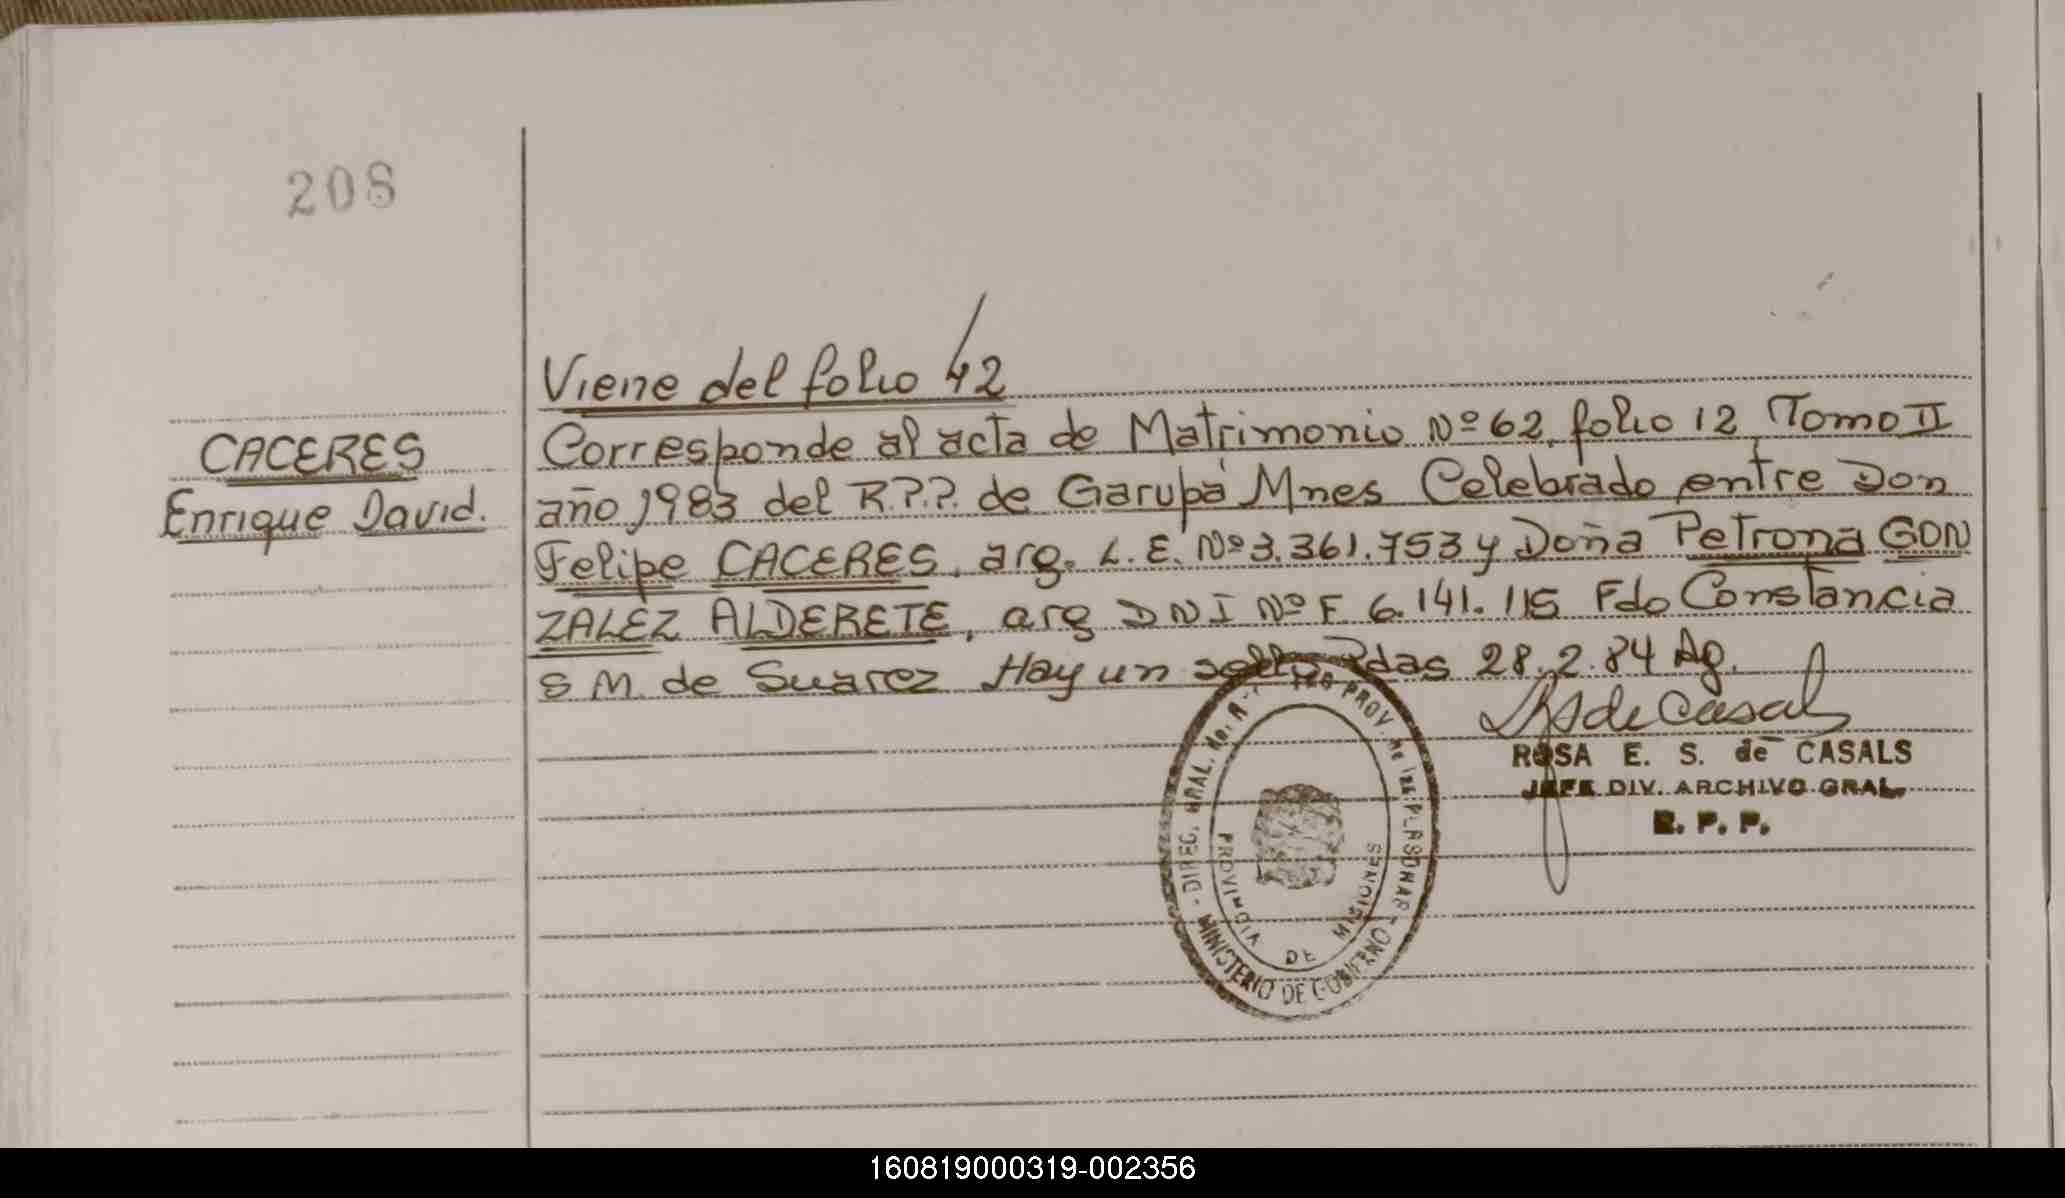 208
Viene del folio 42
CACERES
Enrique David.
Corresponde al acta de Matrimonio Nº 62, folio 12, Tomo II
año 1983 del R.P.P. de Garupá Mnes Celebrado entre Don
Felipe CACERES, arg. L.E. Nº 3.361.753 y Doña Petrona GON
ZALEZ ALDERETE, arg DNI Nº F 6.141.115 Fdo Constancia
S M. de Suarez Hay un sello Pdas 28.2.84 Ag.
de Casals
ROSA E. S. de CASALS
JEFE DIV. ARCHIVO GRAL.
R. P. P.
DIREC. GRAL. PROV. de las PERSONAS
MINISTERIO DE GOBIERNO
PROVINCIA DE MISIONES
160819000319-002356